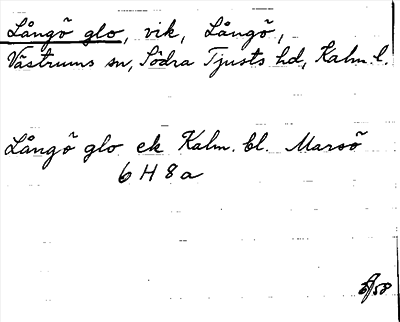 Långö glo, vik, Långö,
Västrums sn, Södra Tjusts hd, Kalm. l.
Långö glo ek Kalm. bl. Marsö
6 H 8 a